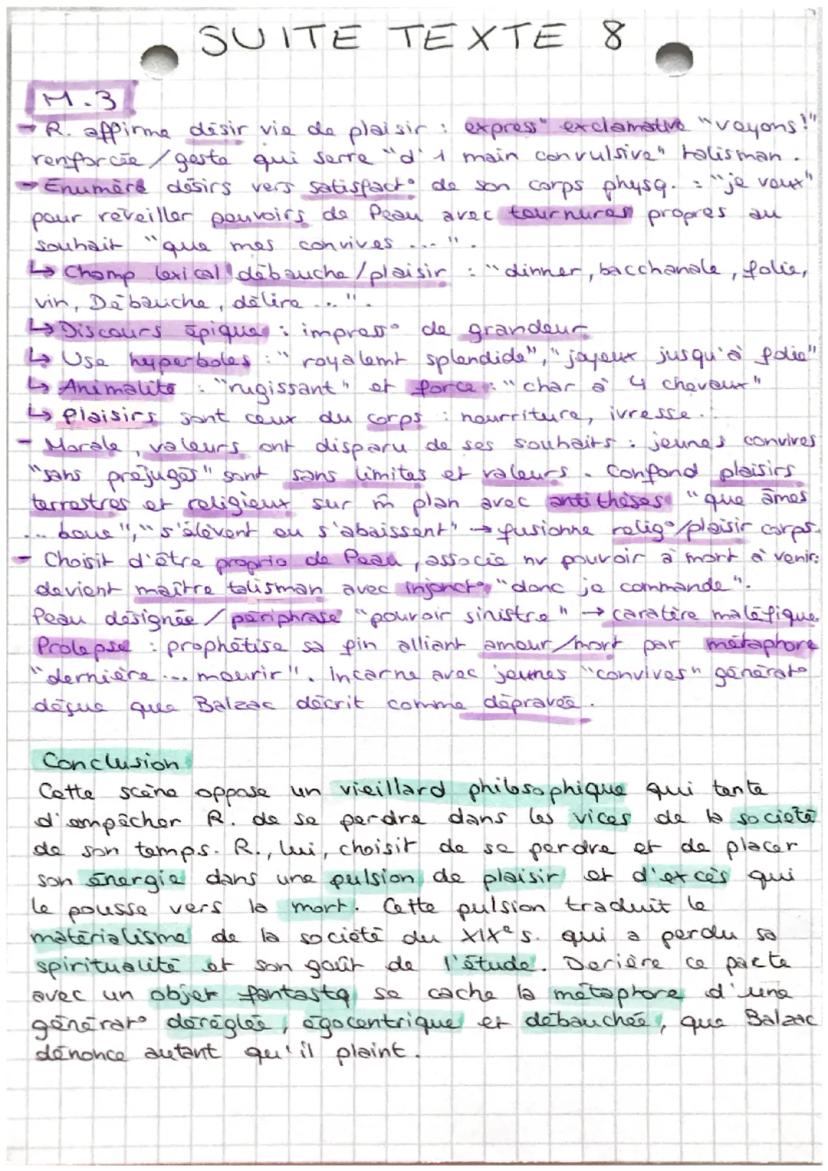 SUITE TEXTE 8
M.3
- R. affirme désir vie de plaisir : express° exclamative "voyons!"
renforcée / geste qui serre "d'1 main convulsive" talisman.
- Enumère désirs vers satisfact° de son corps physq. : "je veux"
pour réveiller pouvoirs de Peau avec tournures propres au
souhait "que mes convives ...".
↳ Champ lexical débauche / plaisir : "dinner, bacchanale, folie,
vin, Débauche, délire ...".
↳ Discours épique : impress° de grandeur
↳ Use hyperboles : "royalemt splendide", "joyeux jusqu'à folie"
↳ Animalité : "rugissant" et force : "char à 4 chevaux"
↳ Plaisirs sont ceux du corps : nourriture, ivresse..
- Morale, valeurs ont disparu de ses souhaits : jeunes convives
"sans préjugés" sont sans limites et valeurs. Confond plaisirs
terrestres et religieux sur m̂ plan avec antithèses "que âmes
... boue", "s'élèvent ou s'abaissent" → fusionne relig°/plaisir corps.
- Choisit d'être proprio de Peau, associe nv pouvoir à mort à venir:
devient maître talisman avec injonct° "donc je commande".
Peau désignée / périphrase "pouvoir sinistre" → caratère maléfique.
Prolepse : prophétise sa fin alliant amour/mort par métaphore
"dernière ... mourir". Incarne avec jeunes "convives" générat°
déçue que Balzac décrit comme dépravée.
Conclusion
Cette scène oppose un vieillard philosophique qui tente
d'empêcher R. de se perdre dans les vices de la société
de son temps. R., lui, choisit de se perdre et de placer
son énergie dans une pulsion de plaisir et d'excès qui
le pousse vers la mort. Cette pulsion traduit le
matérialisme de la société du XIXe s. qui a perdu sa
spiritualité et son goût de l'étude. Derière ce pacte
avec un objet fantastq se cache la métaphore d'une
générat° déréglée, égocentrique et débauchée, que Balzac
dénonce autant qu'il plaint.